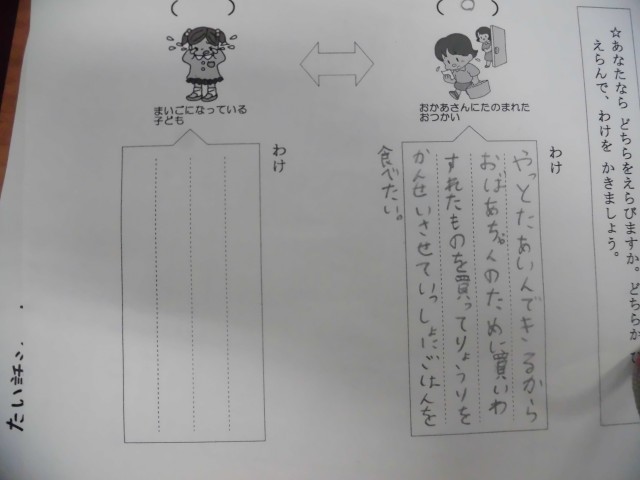 ☆あなたなら どちらをえらびますか。どちらか
えらんで、わけを かきましょう。
おかあさんにたのまれた
おつかい
わけ
やっとたあいんできるから
おばあちゃんのために買いわ
すれたものを買ってりょうりを
かんせいさせていっしょにごはんを
食べたい。
まいごになっている
子ども
わけ
たい話